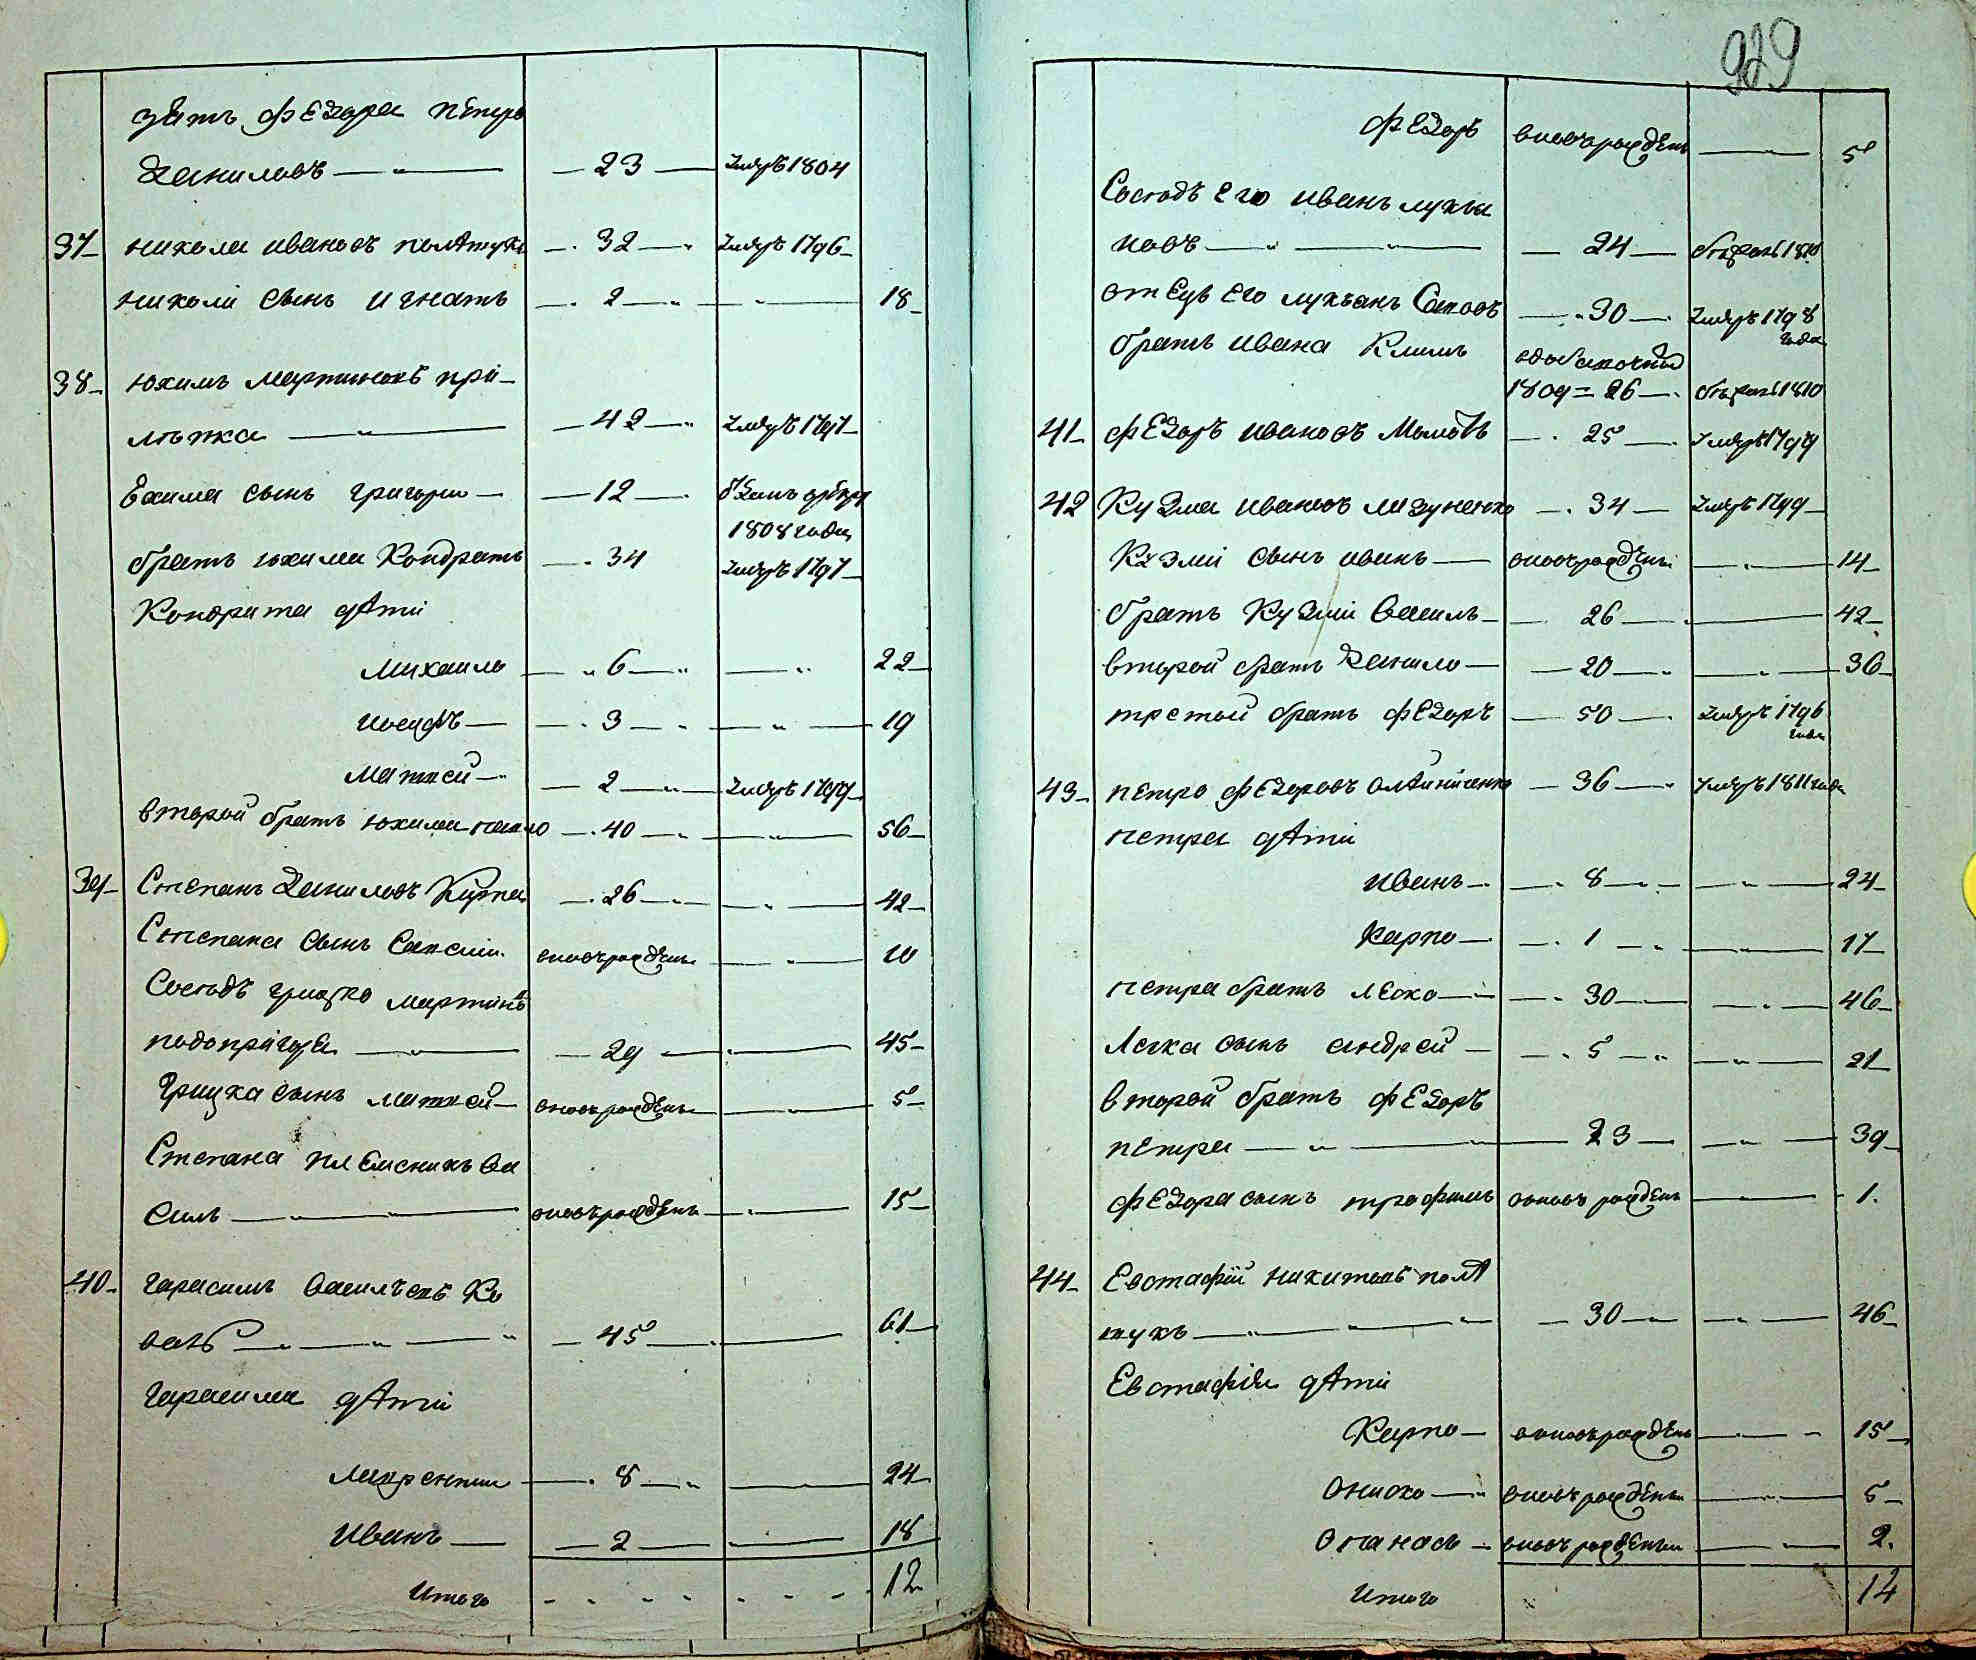 зять Федора Петро
Даниловъ — 23 — Умерѣ 1804
37 Никола Ивановъ Полятука — 32 — Умерѣ 1796
Николи сынъ Игнатъ — 2 — 18
38 Юхимъ Мартиновъ При-
лѣпка — 42 — Умерѣ 1797
Ехима сынъ Григорий — 12 — Отданъ
1808 года
братъ Юхима Кондратъ — 34 Умерѣ 1797
Кондрата дѣти
Михаило — 6 — 22
Иосифъ — 3 — 19
Матвей — 2 — Умерѣ 1799
второй братъ Юхима Павло — 40 — 56
39 Степанъ Даниловъ — 26 — 42
Степана сынъ вновърожденъ — 10
Сосѣдъ Грицко Мартинъ
Подопригора — 29 — 45
Грицка сынъ Матвей — вновърожденъ — 5
Степана племеникъ Ва
силь — вновърожденъ — 15
40 Гарасимъ Васильевъ Ко
валь — 45 — 61
Гарасима дѣти
Лаврентий — 8 — 24
Иванъ — 2 — 18
Итого 12
929
Федоръ вновърожденъ — 5
Сосѣдъ его Иванъ Лукъя
новъ — 24 — 1810
отецъ его Лукъянъ — 30 — Умерѣ 1798
года
братъ Ивана Климъ
1809 = 26 — 1810
41 Федоръ Ивановъ — 25 — Умерѣ 1799
42 Кузма Ивановъ Лазуненко — 34 — Умерѣ 1799
Кузми сынъ Иванъ — вновърожденъ — 14
братъ Кузми Василь — 26 — 42
второй братъ Данило — 20 — 36
третой братъ Федоръ — 50 — Умерѣ 1796
года
43 Петро Федоровъ Олѣйниченко — 36 — Умерѣ 1811 года
Петра дѣти
Иванъ — 8 — 24
Карпо — 1 — 17
Петра братъ Леско — 30 — 46
Леска сынъ Андрей — 5 — 21
второй братъ Федоръ
Петра — 23 — 39
Федора сынъ Трофимъ вновърожденъ — 1
44 Евстафій Никитовъ Поля
тукъ — 30 — 46
Евстафія дѣти
Карпо — вновърожденъ — 15
Ониско — вновърожденъ — 5
Опанасъ — вновърожденъ — 2
Итого 14